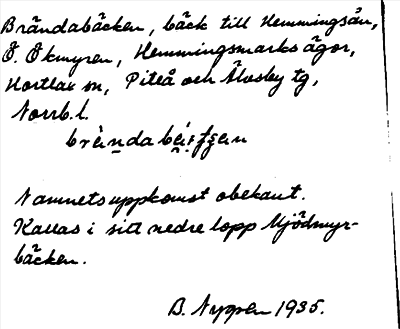 Brändabäcken, bäck till Hemmingsån,
Ö. Åkmyren, Hemmingsmarks ägor,
Hortlax sn, Piteå och Älvsby tg,
Norrb. l.
Namnets uppkomst obekant.
Kallas i sitt nedre lopp Mjödmyr-
bäcken.
B. Nygren 1935.